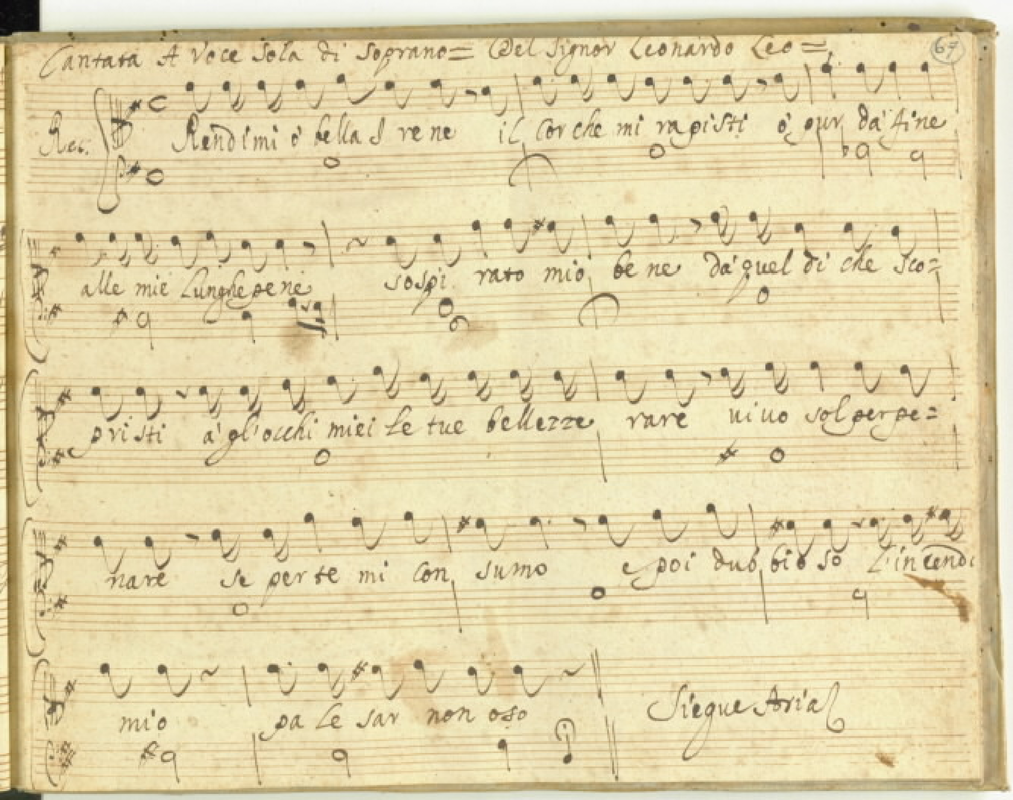 Cantata A Voce Sola di Soprano= Del Signor Leonardo Leo=
67
Rec. Rendimi ò bella I re ne il Cor che mi rapisti ò pur dà fine
alle mie lunghe pene sospi rato mio be ne dà quel di che sco=
pristi à gl'occhi miei le tue bellezze rare vivo sol per pe=
nare se per te mi Con sumo e poi dub bio so l'incendi
mio pa le sar non oso Siegue Aria